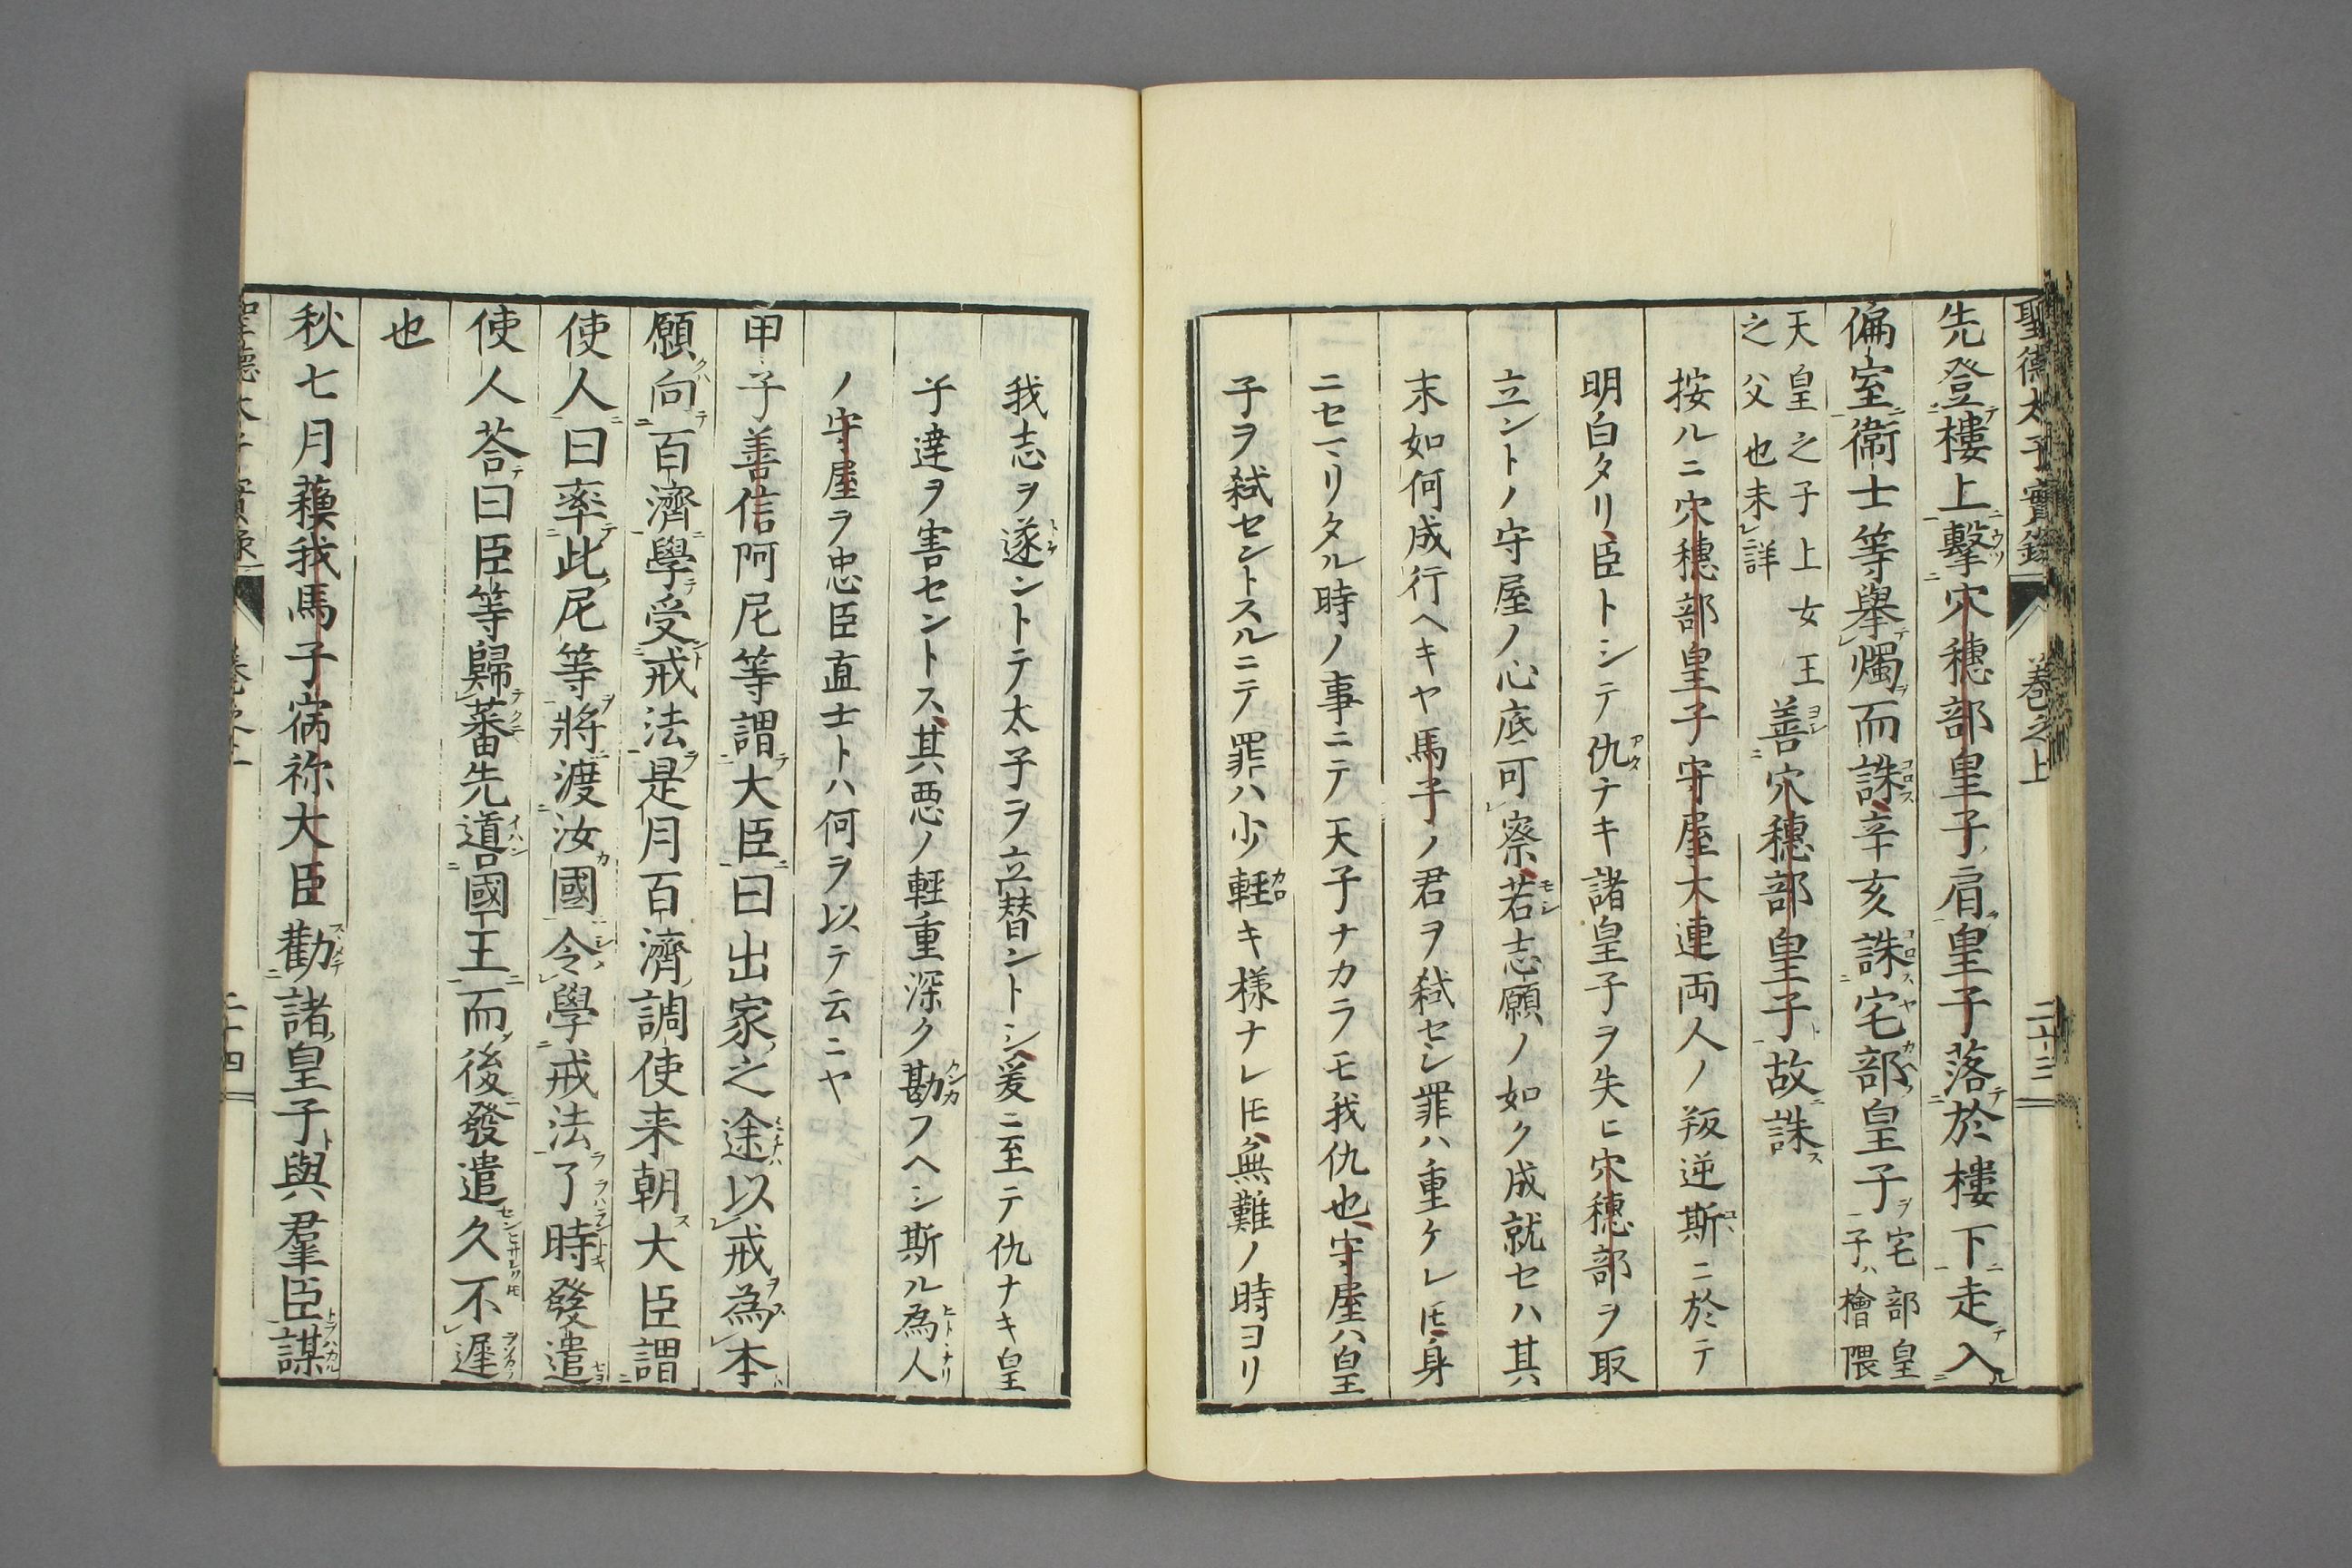 聖德太子實録 卷之上 二十三
先登樓上擊穴穗部皇子肩皇子落於樓下走入
偏室衞士等擧燭而誅辛亥誅宅部皇子宅部皇子ハ檜隈
天皇之子上女王之父也未詳善穴穗部皇子故誅
按ルニ穴穗部皇子守屋大連両人ノ叛逆斯ニ於テ
明白タリ臣トシテ仇ナキ諸皇子ヲ失ヒ穴穗部ヲ取
立ントノ守屋ノ心底可察若志願ノ如ク成就セハ其
末如何成行ヘキヤ馬子ノ君ヲ弑セシ罪ハ重ケレ𪜈身
ニセマリタル時ノ事ニテ天子ナカラモ我仇也守屋ハ皇
子ヲ弑セントスルニテ罪ハ少軽キ様ナレ𪜈無難ノ時ヨリ
我志ヲ遂ントテ太子ヲ立替ントシ爰ニ至テ仇ナキ皇
子達ヲ害セントス其悪ノ軽重深ク勘フヘシ斯ル為人
ノ守屋ヲ忠臣直士トハ何ヲ以テ云ニヤ
甲子善信阿尼等謂大臣曰出家之途以戒為本
願向百濟學受戒法是月百濟調使来朝大臣謂
使人曰率此尼等將渡汝國令學戒法了時發遣
使人荅曰臣等歸蕃先噵國王而後發遣久不遲
也
秋七月蘓我馬子宿祢大臣勸諸皇子與羣臣謀
卷之上 二十四